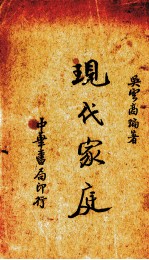 吳雲高編著
現代家庭
中華書局印行